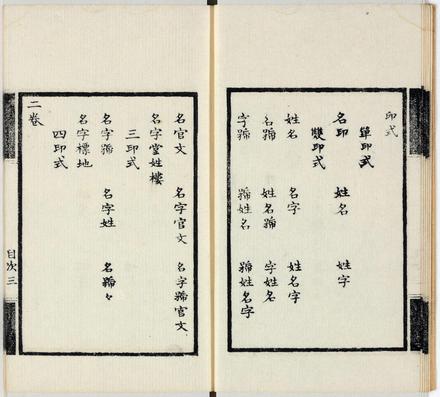 印式
單印式
名印 姓名 姓字
雙印式
姓名 名字 姓名字
名號 姓名號 字姓名
字號 號姓名 號姓名字
名官文 名字官文 名字號官文
名字堂姓樓
三印式
名字號 名字姓 名號々
名字標地
四印式
二卷
目次 三